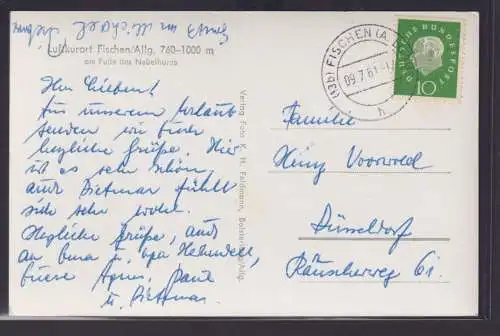 Luftkurort Fischen/Allg. 760-1000 m
am Fuße des Nebelhorns
Ihr Lieben!
Aus unserem Urlaub
senden wir Euch
herzliche Grüße. Hier
ist es sehr schön,
auch Dietmar fühlt
sich sehr wohl.
Herzliche Grüße, auch
an Oma u. Opa
Eure Agnes, Paul
u. Dietmar
Verlag Foto K. H. Feldmann,
(13b) FISCHEN (A
09.7.61
h
DEUTSCHE BUNDESPOST
10
Familie
Heinz Voorwold
Düsseldorf
Räuscherweg 61